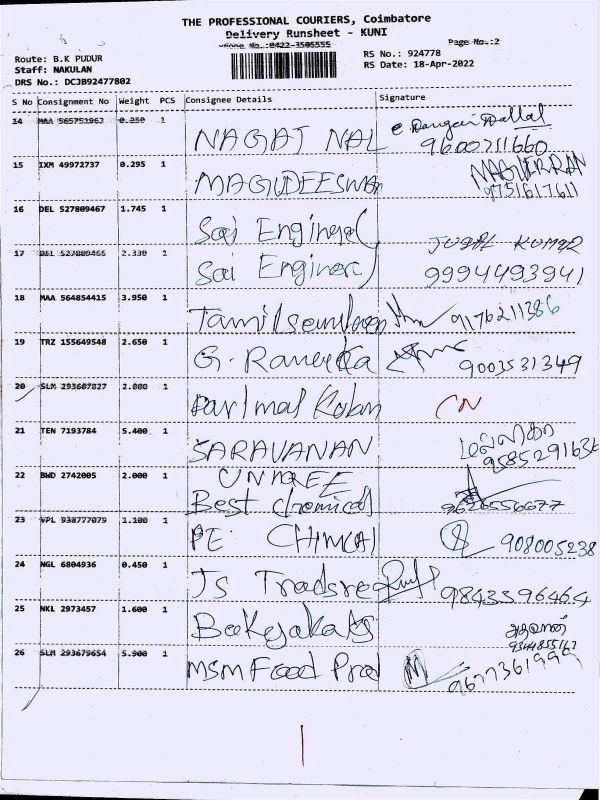 THE PROFESSIONAL COURIERS, Coimbatore
Delivery Runsheet - KUNI
Phone No.:0422-3505555
Page No.:2
Route: B.K PUDUR
Staff: NAKULAN
DRS No.: DCJB92477802
RS No.: 924778
RS Date: 18-Apr-2022
S No Consignment No Weight PCS Consignee Details Signature
14 MAA 565751963 0.250 1 NAGAJ NAL 9600711660
15 IXM 49972737 0.295 1 MAGUDEESWAN 9751617611
16 DEL 527809467 1.745 1 Sai Engineer
17 DEL 527809466 2.330 1 Sai Engineer JUGAL KUMAR 9994493941
18 MAA 564854415 3.950 1 9176211386
19 TRZ 155649548 2.650 1 G. Raneeka 9003531349
20 SLM 293607827 2.000 1 CN
21 TEN 7193784 5.400 1 SARAVANAN 9585291636
22 BWD 2742005 2.000 1 UNIQEE
Best chemicals 9626556677
23 VPL 938777079 1.100 1 PE CHIMCAL 908005238
24 NGL 6804936 0.450 1 Js Tradsre 9843396464
25 NKL 2973457 1.600 1 9344855167
26 SLM 293679654 5.900 1 MSM Food Prod M 9677361999